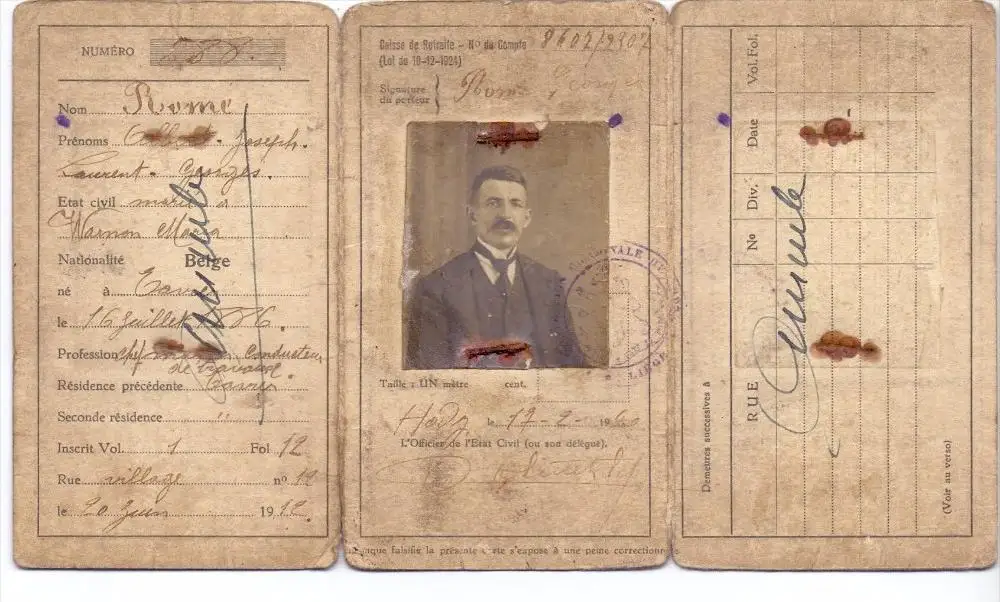 NUMÉRO 788.
Nom Rome
Prénoms Joseph.
Laurent. Georges.
Etat civil marié à
Warnon Maria
Nationalité Belge
né à Tavier
le 16 Juillet 1886.
Profession chef Conducteur
de travaux
Résidence précédente Tavier
Seconde résidence "
Inscrit Vol. 1 Fol 12
Rue village nº 12
le 20 Juin 1912.
Annulé
Caisse de Retraite - Nº du Compte 8607/9907
(Loi du 10-12-1924)
Signature
du porteur Rome Georges
LIÉGE
Taille : UN mètre cent.
le 17-2-1960
L'Officier de l'Etat Civil (ou son délégué).
que falsifie la présente carte s'expose à une peine correctionnelle
Demeures successives à
RUE Nº Div. Date Vol. Fol.
Annulé
(Voir au verso)